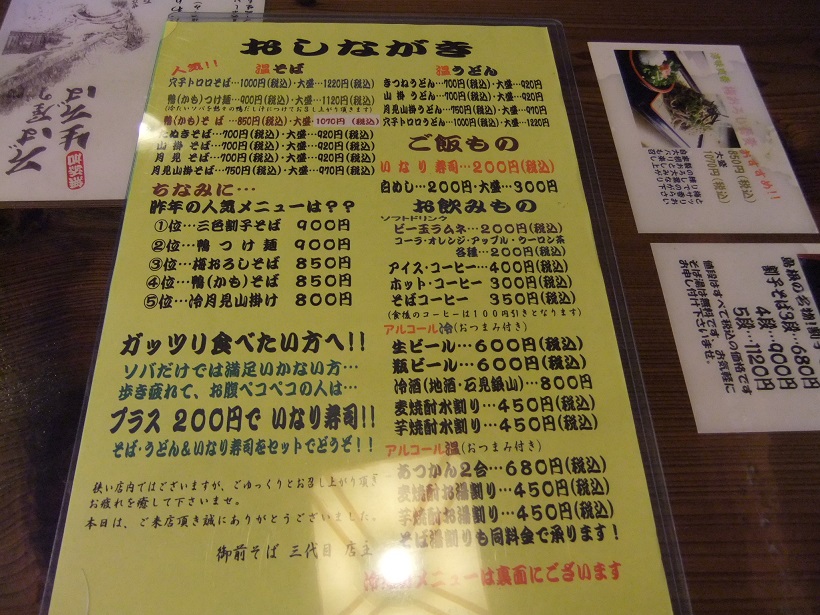 おしながき
人気!! 温そば
穴子トロロそば…1000円(税込)・大盛…1220円(税込)
鴨(かも)つけ麺…900円(税込)・大盛…1120円(税込)
鴨(かも)そば…850円(税込)・大盛…1070円(税込)
たぬきそば…700円(税込)・大盛…920円(税込)
山掛そば…700円(税込)・大盛…920円(税込)
月見そば…700円(税込)・大盛…920円(税込)
月見山掛そば…750円(税込)・大盛…970円(税込)
ちなみに…
昨年の人気メニューは??
①位…三色割子そば 900円
②位…鴨つけ麺 900円
③位…梅おろしそば 850円
④位…鴨(かも)そば 850円
⑤位…冷月見山掛け 800円
ガッツリ食べたい方へ!!
ソバだけでは満足いかない方…
歩き疲れて、お腹ペコペコの人は…
プラス 200円で いなり寿司!!
そば・うどん&いなり寿司をセットでどうぞ!!
狭い店内ではございますが、ごゆっくりとお召し上がり頂き
お疲れを癒して下さいませ。
本日は、ご来店頂き誠にありがとうございました。
御前そば 三代目 店主
温うどん
きつねうどん…700円(税込)・大盛…920円
山掛うどん…700円(税込)・大盛…920円
月見山掛うどん…750円(税込)・大盛…970円
穴子トロロうどん…1000円(税込)・大盛…1220円
ご飯もの
いなり寿司…200円(税込)
白めし…200円・大盛…300円
お飲みもの
ソフトドリンク
ビー玉ラムネ…200円(税込)
コーラ・オレンジ・アップル・ウーロン茶
各種…200円(税込)
アイス・コーヒー…400円(税込)
ホット・コーヒー 300円(税込)
そばコーヒー 350円(税込)
(食後のコーヒーは100円引きとなります)
アルコール冷(おつまみ付き)
生ビール…600円(税込)
瓶ビール…600円(税込)
冷酒(地酒・石見銀山)…800円
麦焼酎水割り…450円(税込)
芋焼酎水割り…450円(税込)
アルコール温(おつまみ付き)
あつかん2合…680円(税込)
麦焼酎お湯割り…450円(税込)
芋焼酎お湯割り…450円(税込)
そば湯割りも同料金で承ります!
メニューは裏面にございます
850円(税込)
大盛
1070円(税込)
島根の名物!割子
割子そば3段…680円
4段…900円
5段…1120円
値段はすべて税込の価格です
そば湯は無料です。お気軽に
お申し付け下さいませ。